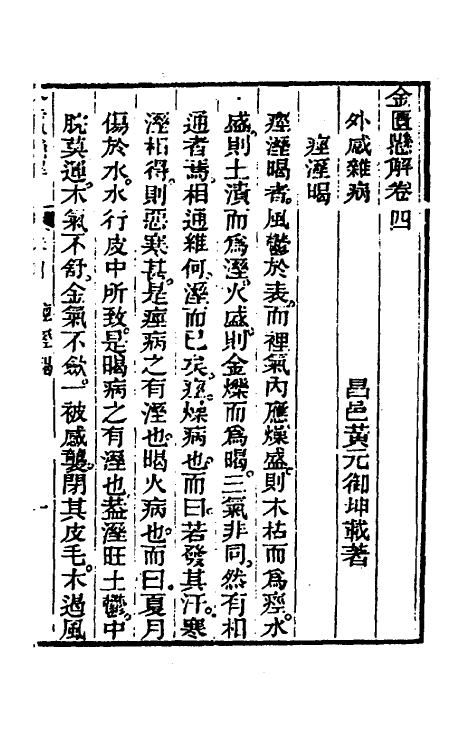 金匱懸解卷四
外感雜病　昌邑黃元御坤載著
痙溼暍
痙溼暍者。風鬱於表。而裡氣內應。燥盛。則木枯而爲痙。水
盛。則土濆而爲溼。火盛。則金爍而爲暍。三氣非同。然有相
通者焉。相通維何。溼而已矣。痙。燥病也。而曰若發其汗。寒
溼相得。則惡寒甚。是痙病之有溼也。暍火病也。而曰夏月
傷於水。水行皮中所致。是暍病之有溼也。蓋溼旺土鬱。中
脘莫通。木氣不舒。金氣不歛。一被感襲。閉其皮毛。木遏風
痙溼暍　一